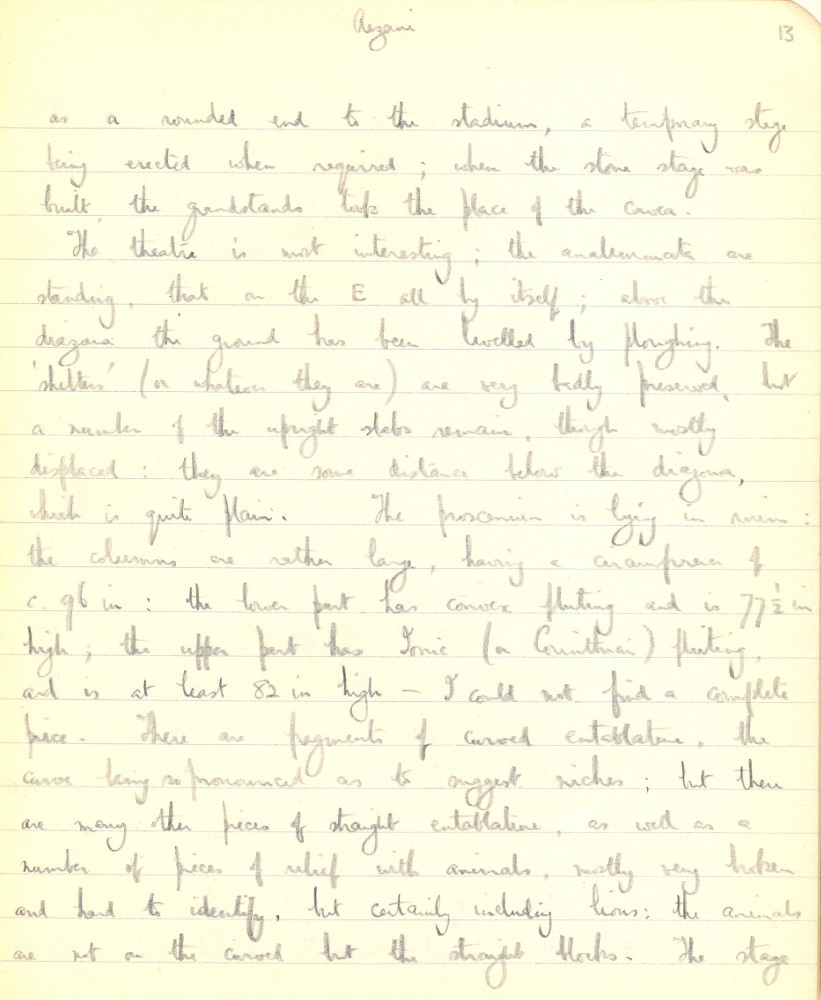 Aezani
13
as a rounded end to the stadium, a temporary stage
being erected when required; when the stone stage was
built, the grandstands took the place of the cavea.
The theatre is most interesting; the analemmata are
standing, that on the E all by itself; above the
diazoma the ground has been levelled by ploughing. The
'shelters' (or whatever they are) are very badly preserved, but
a number of the upright slabs remain, though mostly
displaced: they are some distance below the diazoma,
which is quite plain. The proscenium is lying in ruins:
the columns are rather large, having a circumference of
c. 96 in: the lower part has convex fluting and is 77½ in
high; the upper part has Ionic (or Corinthian) fluting,
and is at least 82 in high – I could not find a complete
piece. There are fragments of curved entablature, the
curve being so pronounced as to suggest niches; but there
are many other pieces of straight entablature, as well as a
number of pieces of relief with animals, mostly very broken
and hard to identify, but certainly including lions: the animals
are not on the curved but the straight blocks. The stage